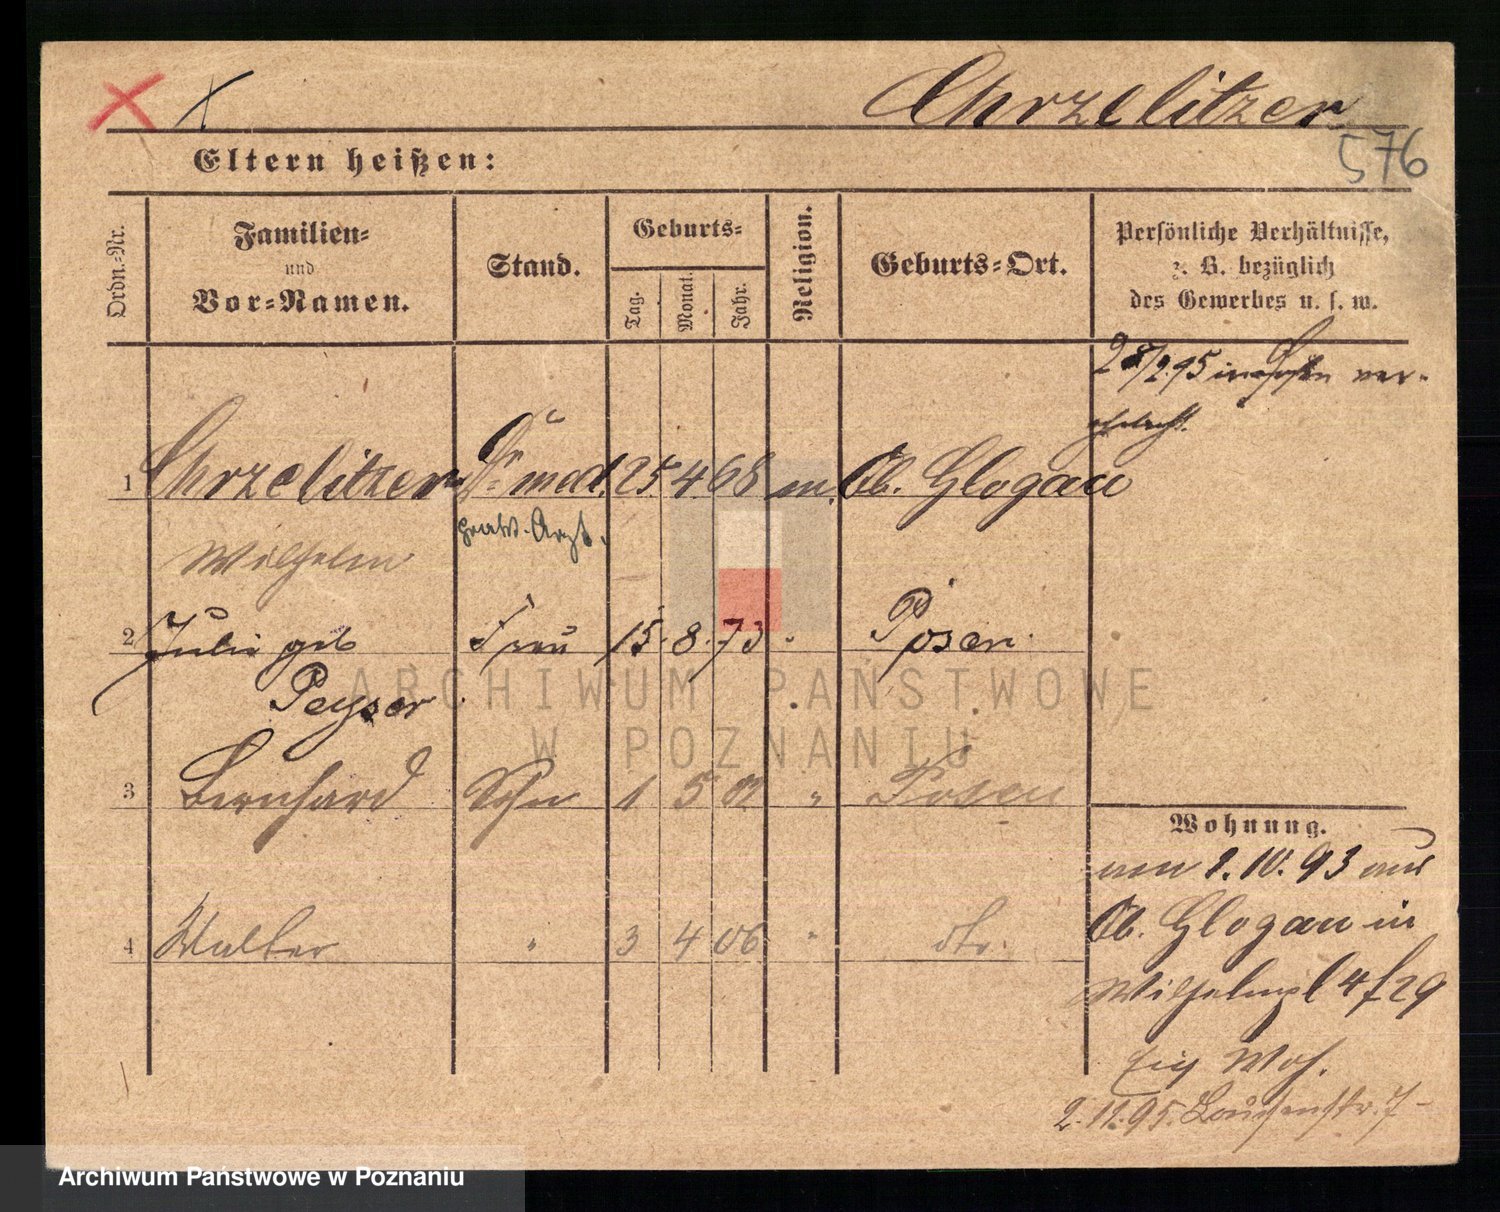 Chrzelitzer
576
Eltern heißen:
Ordn.=Nr.
Familien=
und
Vor=Namen.
Stand.
Geburts=
Tag.
Monat.
Jahr.
Religion.
Geburts=Ort.
Persönliche Verhältnisse,
z. B. bezüglich
des Gewerbes u. s. w.
28/2.95 in Posen ver-
ehelicht.
1 Chrzelitzer Dr med. 25. 4. 68 m. Ob. Glogau
prakt. Arzt.
Wilhelm
2 Julie geb Frau 15. 8. 73 " Posen
Peyser
3 Bernhard Sohn 1 5 02 " Posen
4 Walter " 3 4 06 " dto.
Wohnung.
1.10.93 aus
Ob. Glogau in
Wilhelmspl 4 f 29
Eig Woh.
2.11.95. Louisenstr. 7
ARCHIWUM PAŃSTWOWE
W POZNANIU
Archiwum Państwowe w Poznaniu